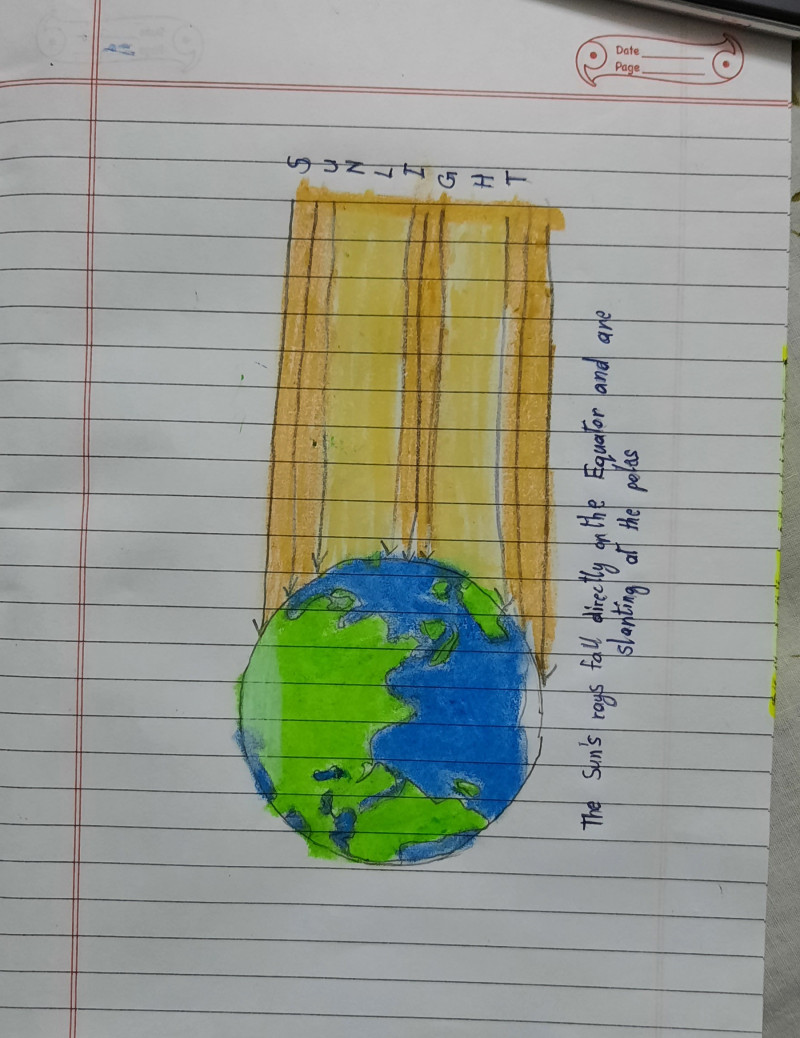 Date
Page
SUNLIGHT
The Sun's rays fall directly on the Equator and are
slanting at the poles